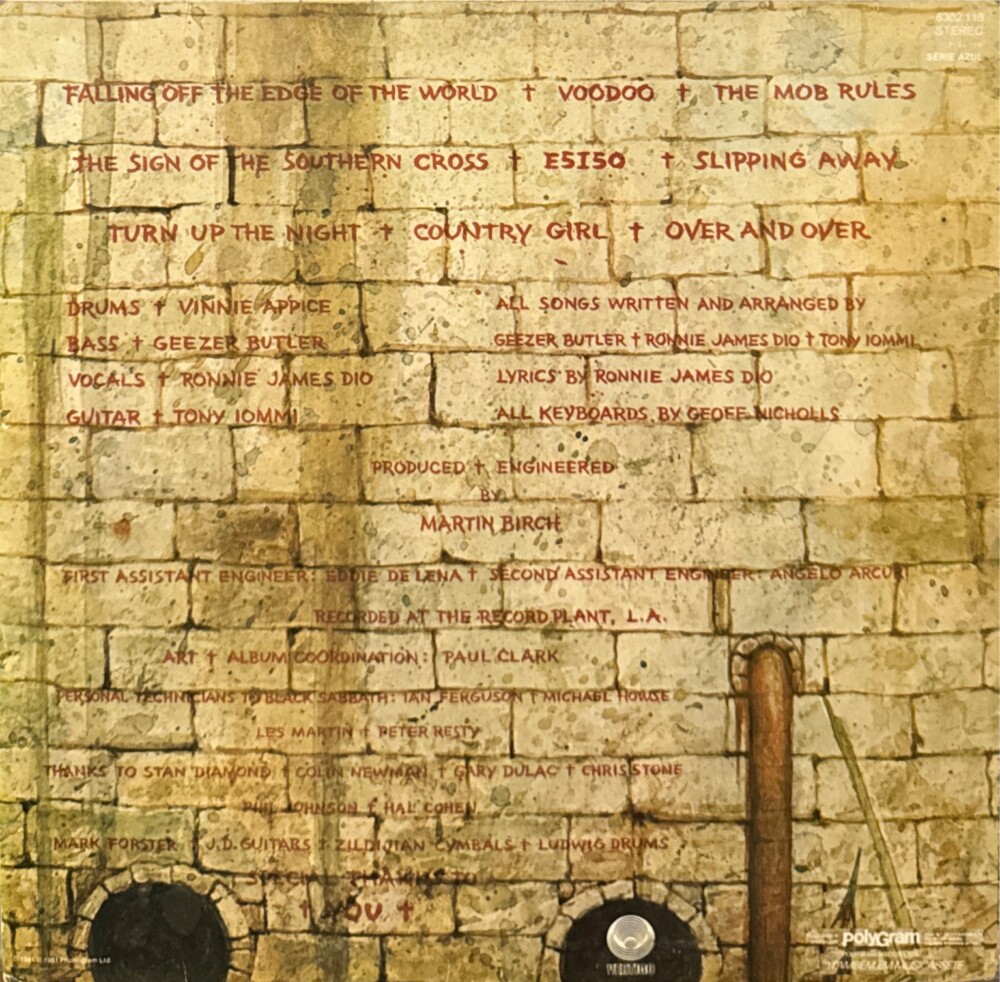 6302 118
STEREO
SERIE AZUL
FALLING OFF THE EDGE OF THE WORLD † VOODOO † THE MOB RULES
THE SIGN OF THE SOUTHERN CROSS † E5150 † SLIPPING AWAY
TURN UP THE NIGHT † COUNTRY GIRL † OVER AND OVER
DRUMS † VINNIE APPICE
BASS † GEEZER BUTLER
VOCALS † RONNIE JAMES DIO
GUITAR † TONY IOMMI
ALL SONGS WRITTEN AND ARRANGED BY
GEEZER BUTLER † RONNIE JAMES DIO † TONY IOMMI
LYRICS BY RONNIE JAMES DIO
ALL KEYBOARDS BY GEOFF NICHOLLS
PRODUCED † ENGINEERED
BY
MARTIN BIRCH
FIRST ASSISTANT ENGINEER: EDDIE DE LENA † SECOND ASSISTANT ENGINEER: ANGELO ARCURI
RECORDED AT THE RECORD PLANT, L.A.
ART † ALBUM COORDINATION: PAUL CLARK
PERSONAL TECHNICIANS TO BLACK SABBATH: IAN FERGUSON † MICHAEL HOWSE
LES MARTIN † PETER RESTY
THANKS TO STAN DIAMOND † COLIN NEWMAN † GARY DULAC † CHRIS STONE
PHIL JOHNSON † HAL COHEN
MARK FORSTER † J.D. GUITARS † ZILDJIAN CYMBALS † LUDWIG DRUMS
SPECIAL THANKS TO
† YOU †
VERTIGO
polyGram
TAMBEM EM MUSICASSETE